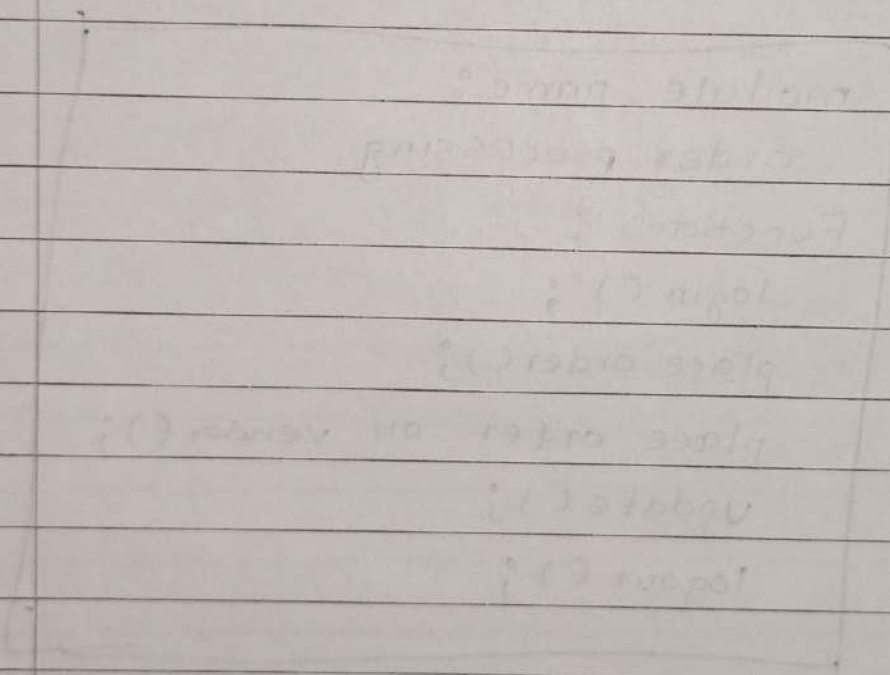 module name :
order processing
Functions :
login ( ) ;
place order ( ) ;
place order on vendor ( ) ;
update ( ) ;
logout ( ) ;